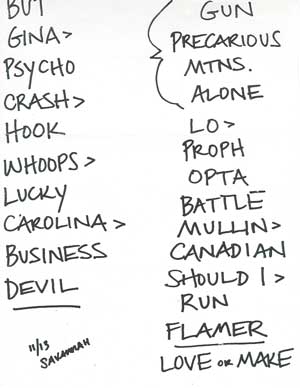 BUT
GINA >
PSYCHO
CRASH >
HOOK
WHOOPS >
LUCKY
CAROLINA >
BUSINESS
DEVIL
11/13
SAVANNAH
GUN
PRECARIOUS
MTNS.
ALONE
LO >
PROPH
OPTA
BATTLE
MULLIN >
CANADIAN
SHOULD I >
RUN
FLAMER
LOVE OR MAKE